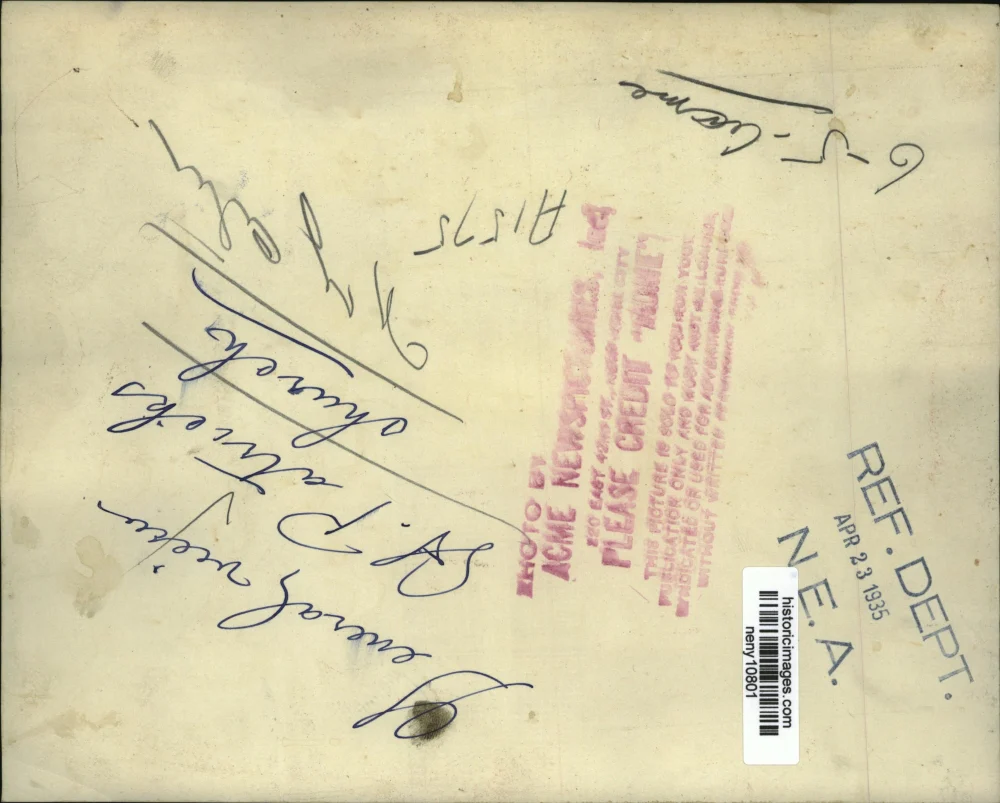 General view
St. Patricks
church
N Y
City
A1575
6-5. Acme
PHOTO BY
ACME NEWSPICTURES, Inc.
220 EAST 42ND ST., NEW YORK CITY
PLEASE CREDIT "ACME"
THIS PICTURE IS SOLD TO YOU FOR YOUR
PUBLICATION ONLY AND MUST NOT BE LOANED,
SYNDICATED OR USED FOR ADVERTISING PURPOSES
WITHOUT WRITTEN PERMISSION
REF. DEPT.
APR 23 1935
N. E. A.
historicimages.com
neny10801